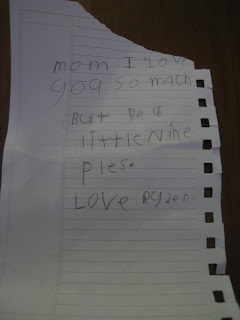 mom I Love
yoa so mach
But be a
little Nine
ples.
LOVE Ryder